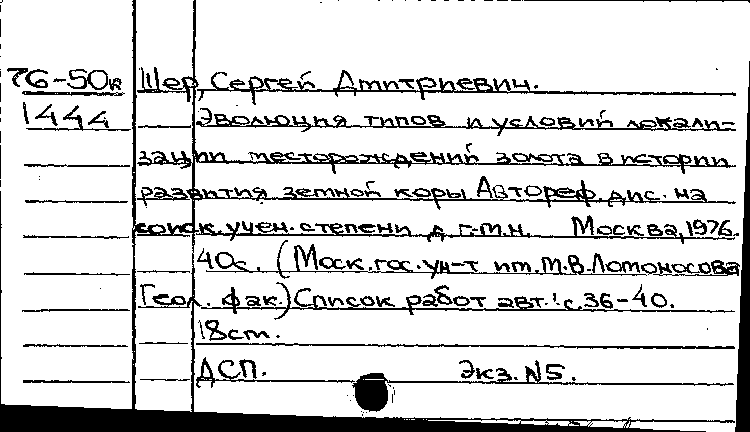 76-50к Шер, Сергей Дмитриевич.
1444 Эволюция типов и условий локали-
зации месторождений золота в истории
развития земной коры Автореф. дис. на
соиск. учен. степени д г.-м.н. Москва, 1976.
40с. (Моск. гос. ун-т им. М.В. Ломоносова
Геол. фак.) Список работ авт.: с. 36-40.
18см.
ДСП. Экз. №5.